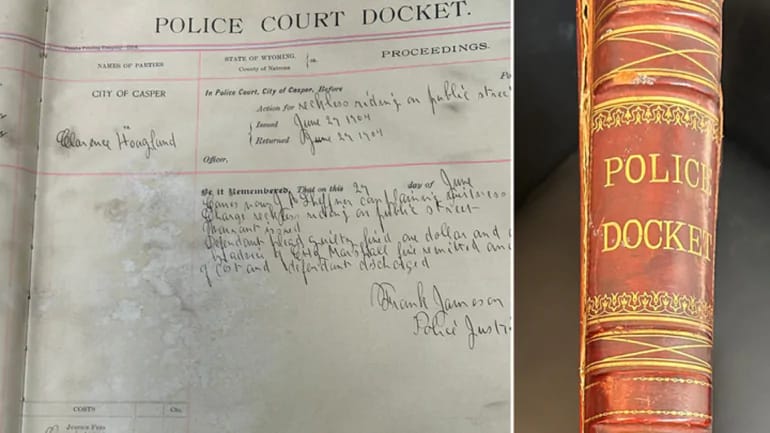 POLICE COURT DOCKET.
NAMES OF PARTIES
STATE OF WYOMING,
County of Natrona
ss.
PROCEEDINGS.
CITY OF CASPER
vs.
Clarence Hoagland
In Police Court, City of Casper, Before
Action for reckless riding on public street
Issued June 27 1904
Returned June 27 1904
Officer,
Be it Remembered, That on this 27 day of June
Comes now J
Charge reckless riding on public street
Warrant issued
Defendant plead guilty, fined one dollar and
Marshall fine remitted
of cost and defendant discharged
Frank Jameson
Police Justi
COSTS
Cts.
Justice's Fees
POLICE
DOCKET